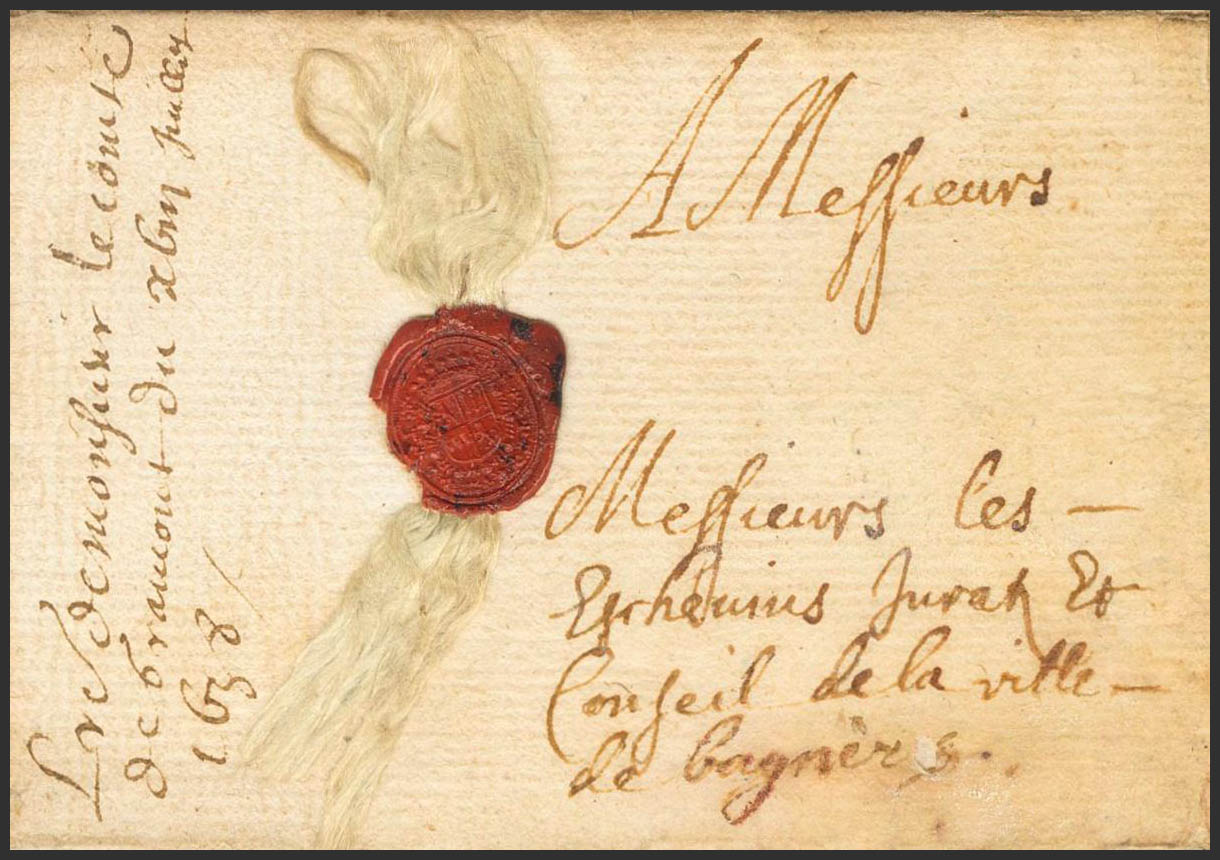 A Messieurs
Messieurs les –
Eschevins Juratz Et
Conseil de la ville –
de bagnères.
Lre de monsieur le comte
de Gramont du xbiij juillet
1638